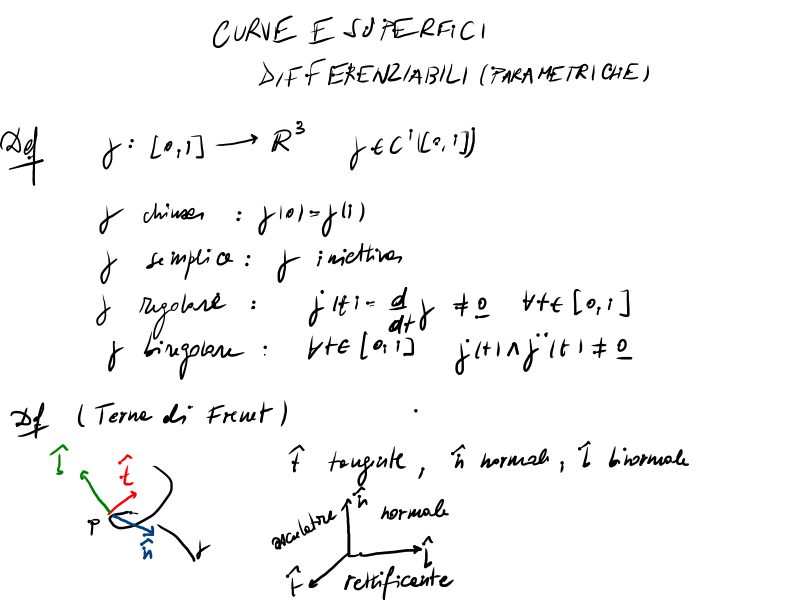 CURVE E SUPERFICI
DIFFERENZIABILI (PARAMETRICHE)
Def γ : [0,1] → ℝ³ γ ∈ C¹([0,1])
γ chiusa : γ(0) = γ(1)
γ semplice : γ iniettiva
γ regolare : γ̇(t) = d/dt γ ≠ 0 ∀t ∈ [0,1]
γ biregolare : ∀t ∈ [0,1] γ̇(t) ∧ γ̈(t) ≠ 0
Def (Terna di Frenet)
t̂ tangente, n̂ normale, b̂ binormale
b̂
t̂
P
n̂
γ
n̂
osculatore
normale
b̂
t̂
rettificante